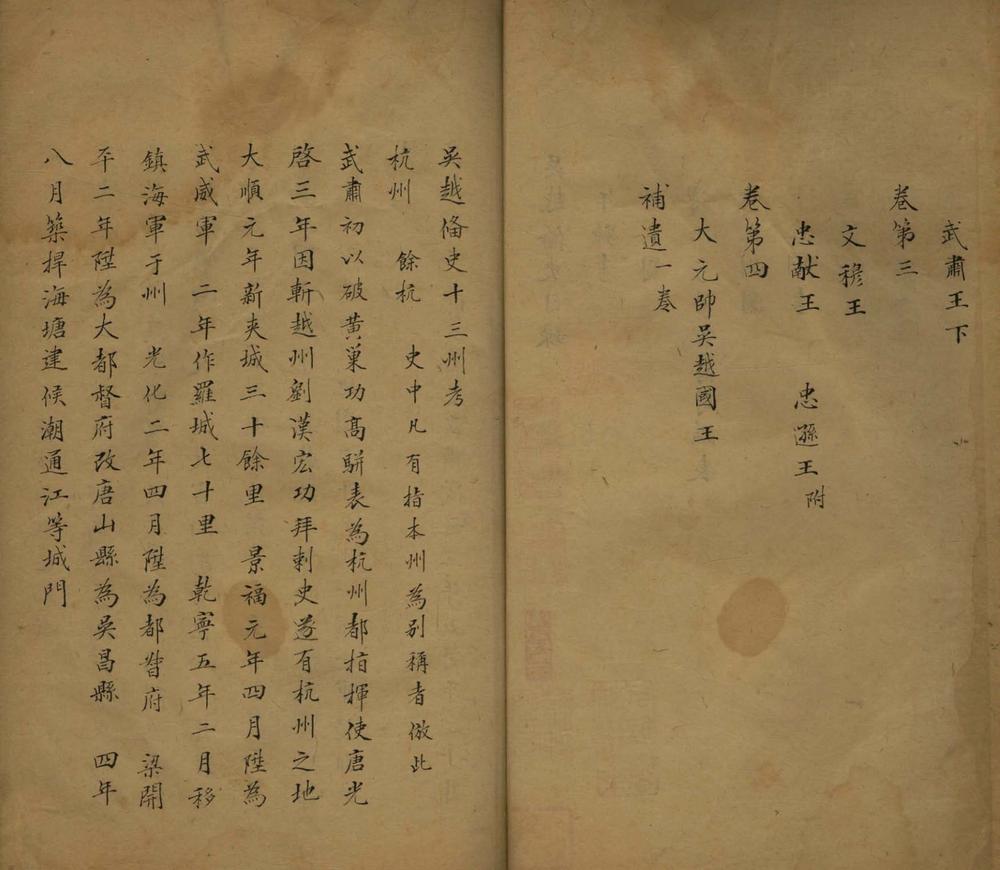 武肅王下
卷第三
文穆王
忠献王　忠遜王附
卷第四
大元帥吳越國王
補遺一卷
吳越俻史十三州考
杭州　餘杭　史中凡有指本州為別稱者倣此
武肅初以破黃巢功高駢表為杭州都指揮使唐光
啓三年因斬越州劉漢宏功拜刺史遂有杭州之地
大順元年新夾城三十餘里　景福元年四月陞為
武威軍　二年作羅城七十里　乾寧五年二月移
鎮海軍于州　光化二年四月陞為都督府　梁開
平二年陞為大都督府改唐山縣為吳昌縣　四年
八月築捍海塘建候潮通江等城門